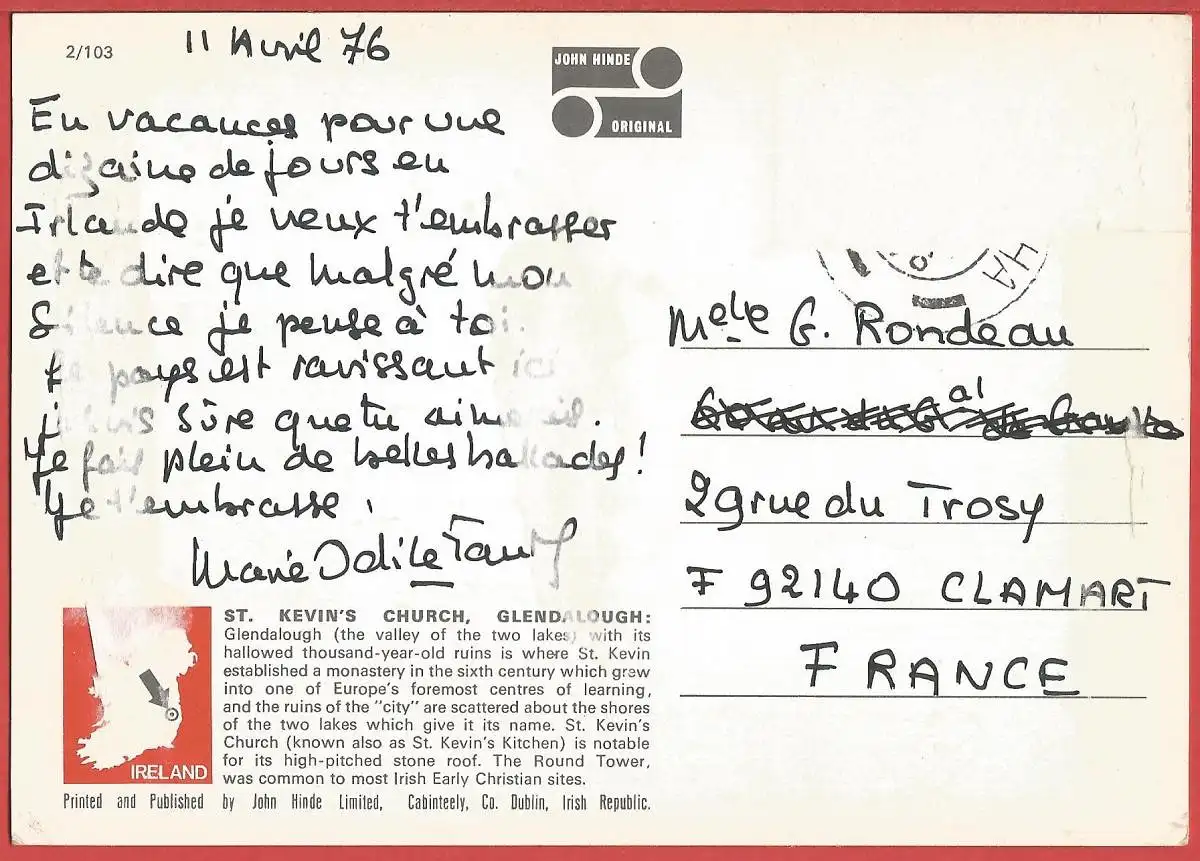 2/103
11 Avril 76
JOHN HINDE
ORIGINAL
En vacances pour une
dizaine de jours en
Irlande je veux t'embrasser
et te dire que malgré mon
Silence je pense à toi.
Le pays est ravissant ici
je suis sûre que tu aimerais.
Je fais plein de belles ballades!
Je t'embrasse.
Marie Odile
Melle G. Rondeau
29 rue du Trosy
F 92140 CLAMART
FRANCE
ST. KEVIN'S CHURCH, GLENDALOUGH:
Glendalough (the valley of the two lakes) with its
hallowed thousand-year-old ruins is where St. Kevin
established a monastery in the sixth century which grew
into one of Europe's foremost centres of learning,
and the ruins of the "city" are scattered about the shores
of the two lakes which give it its name. St. Kevin's
Church (known also as St. Kevin's Kitchen) is notable
for its high-pitched stone roof. The Round Tower,
was common to most Irish Early Christian sites.
IRELAND
Printed and Published by John Hinde Limited, Cabinteely, Co. Dublin, Irish Republic.